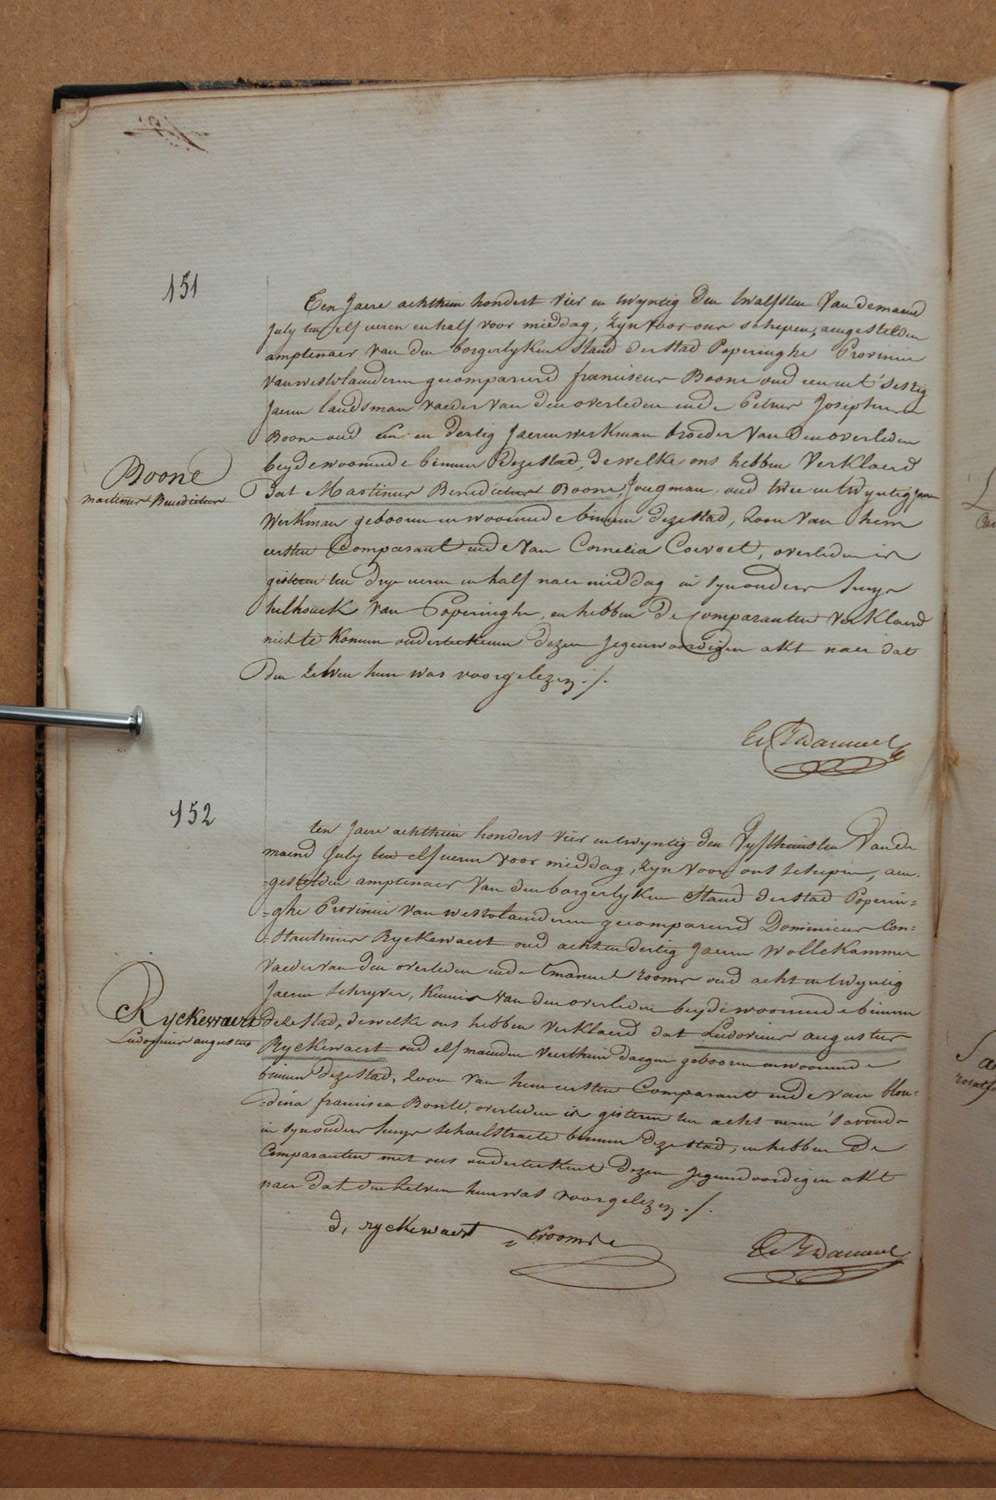 151
Ten Jaere achthien hondert vier en twyntig den twalfsten Van de maend
July ten elf ueren en half voor middag, zyn voor ons schepen, aengestelden
amptenaer van den borgerlyken Stand der stad Poperinghe Provincie
van westvlaenderen gecompareerd franciscus Boone oud een en t'sestig
Jaeren landsman vaeder van den overleden ende Petrus Josephus
Boone oud een en dertig Jaeren werkman broeder van den overleden
beyde woonende binnen deze stad, dewelke ons hebben Verklaerd
Boone
martinus Benedictus
dat Martinus Benedictus Boone Jongman oud twee en twyntig Jaeren
Werkman gebooren en woonende binnen deze stad, Zoon van hem
eersten Comparant ende van Cornelia Coevoet, overleden is
gisteren ten drye ueren en half naer middag in syn ouders huys
helhouck van Poperinghe, en hebben de Comparanten Verklaerd
niet te konnen onderteekenen dezen Jegenwoordigen akt naer dat
den zelven hun was voorgelezen ./.
152
ten Jaere achthien hondert vier en twyntig den Vyfthiensten Van de
maend July ten elf ueren voor middag, zyn voor ons schepen, aen-
-gestelden amptenaer van den borgerlyken Stand der stad Poperin-
-ghe Provincie van westvlaenderen gecompareerd Dominicus Con-
-stantinus Ryckewaert oud acht en dertig Jaeren wollekammer
vaeder van den overleden ende Emanuel rooms oud acht en twyntig
Jaeren schryver, kennis van den overleden beyde woonende binnen
Ryckewaert
Ludovicus augustus
deze stad, dewelke ons hebben verklaerd dat Ludovicus augustus
Ryckewaert oud elf maenden veerthien daegen gebooren en woonende
binnen deze stad, zoon van hem eersten Comparant ende van blon-
-dina francisca Bonte, overleden is gisteren ten acht ueren 's avonds
in syn ouders huys schoolstraete binnen deze stad, en hebben de
Comparanten met ons onderteekent dezen Jegenwoordigen akt
naer dat den zelven hun was voorgelezen ./.
d, ryckewaert Erooms